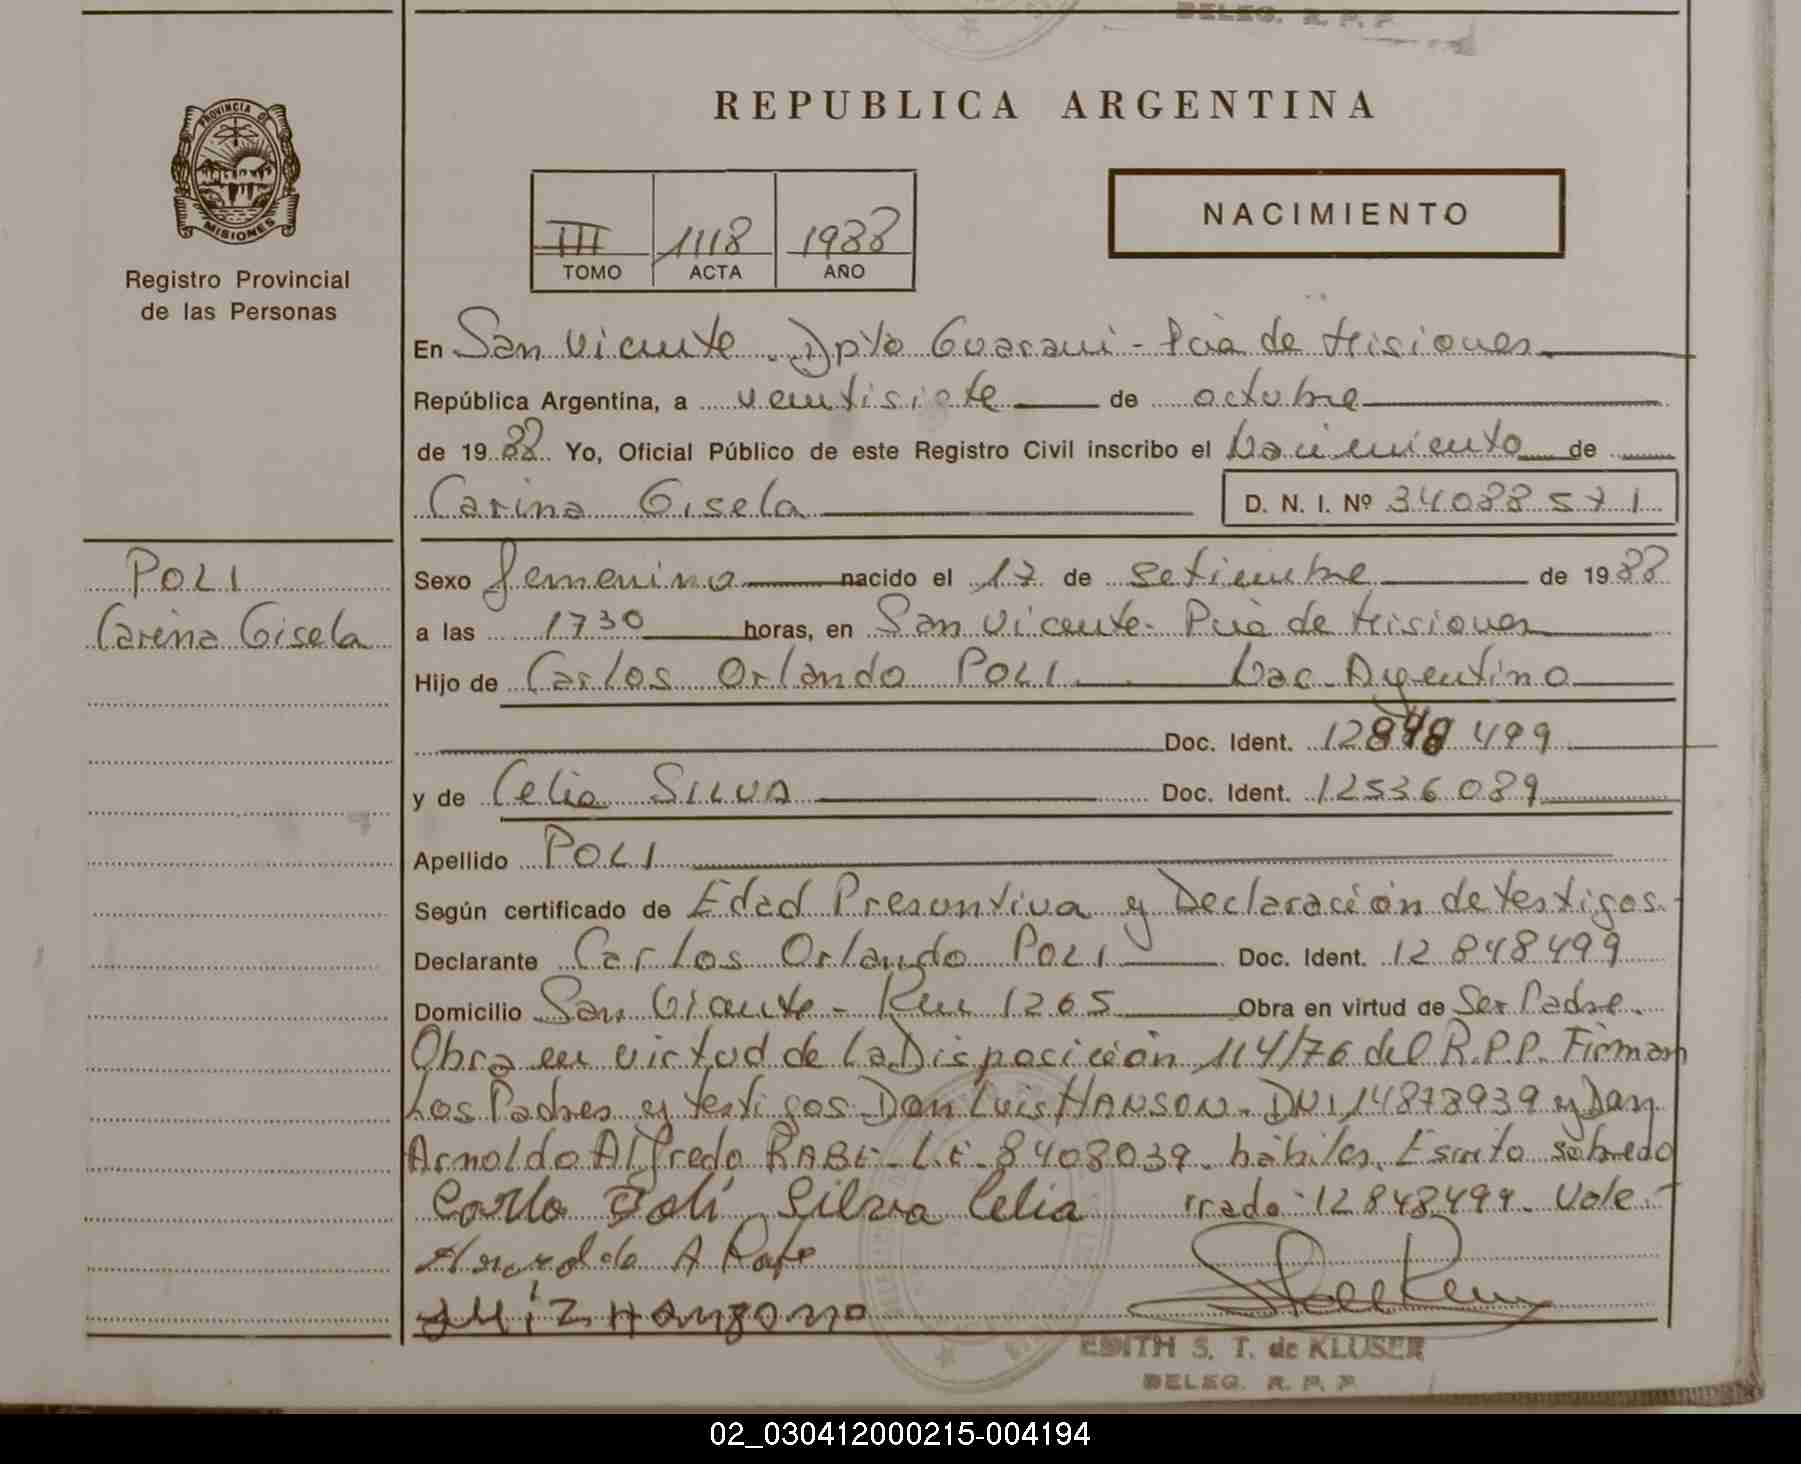 DELEG. R. P. P.
REPUBLICA ARGENTINA
PROVINCIA DE
MISIONES
Registro Provincial
de las Personas
III 1118 1988
TOMO ACTA AÑO
NACIMIENTO
En San Vicente Dpto Guarani - Pcia de Misiones
República Argentina, a ventisiete de octubre
de 1988 Yo, Oficial Público de este Registro Civil inscribo el Nacimiento de
Carina Gisela D. N. I. Nº 34088571
POLI
Carina Gisela
Sexo femenino nacido el 17 de setiembre de 1988
a las 1730 horas, en San Vicente - Pcia de Misiones
Hijo de Carlos Orlando POLI Nac. Argentino
Doc. Ident. 12848499
y de Celia SILVA Doc. Ident. 12536089
Apellido POLI
Según certificado de Edad Presuntiva y Declaración de testigos.
Declarante Carlos Orlando POLI Doc. Ident. 12848499
Domicilio San Vicente - Km 1265 Obra en virtud de Ser Padre.
Obra en virtud de la Disposición 114/76 del R.P.P. Firman
Los Padres y testigos Don Luis HANSON. DNI 14873939 y Don
Arnoldo Alfredo RABE - L.E. 8408039. hábiles. Escrito sobredo
Carlo Poli Silva Celia rrado: 12848499. Vale -
A Rabe
EDITH S. T. de KLUSER
DELEG. R. P. P.
02_030412000215-004194